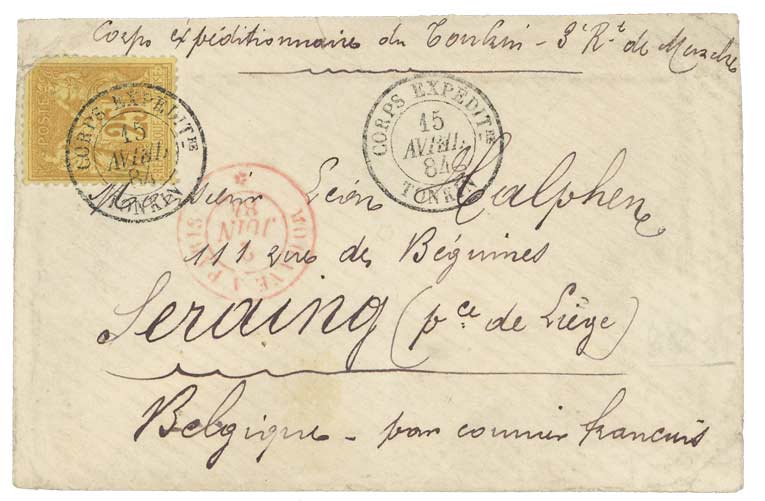 Corps expéditionnaire du Tonkin - 3e Rt de Marche
POSTES
25
CORPS EXPEDITRE
15
AVRIL
84
TONKIN
CORPS EXPEDITRE
15
AVRIL
84
TONKIN
Monsieur Léon Halphen
MODANE A PARIS
JUIN
84
111 rue des Béguines
Seraing (pce de Liège)
Belgique - par courrier français